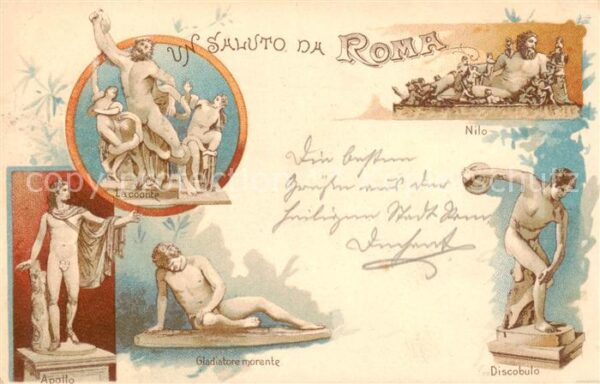 Un Saluto da Roma
Nilo
Laocoonte
Die besten
Grüße aus der
heiligen Stadt Rom
Apollo
Gladiatore morente
Discobulo